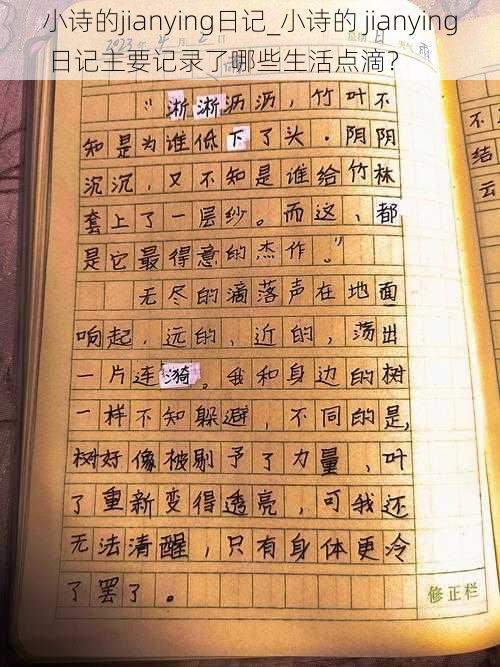 小诗的jianying日记_小诗的 jianying
日记主要记录了哪些生活点滴？
2023年4月2日
天气
雨
“淅淅沥沥，竹叶不
知是为谁低下了头．阴阴
沉沉，又不知是谁给竹林
套上了一层纱。而这、都
是它最得意的杰作。”
无尽的滴落声在地面
响起，远的，近的，荡出
一片连漪。我和身边的树
一样不知躲避，不同的是，
树好像被剔予了力量，叶
了重新变得透亮，可我还
无法清醒，只有身体更冷
了罢了。
修正栏
不
结
云